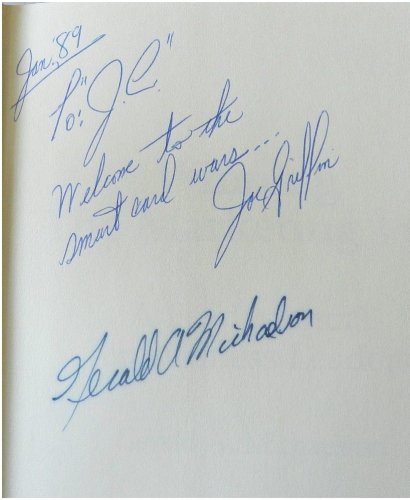 Jan. '89
To: "J.C."
Welcome to the
smart card wars...
Joe Griffin
Gerald A Michaelson